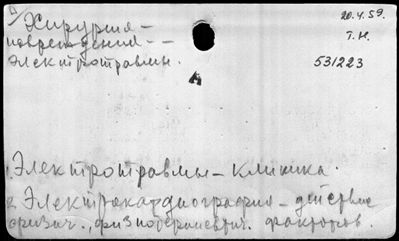 Хирургия -
повреждения - -
электротравмы.
20.4.59.
Т.К.
531223
А
1. Электротравмы - клиника.
2. Электрокардиография - действие
физич., физиотерапевтич. факторов.